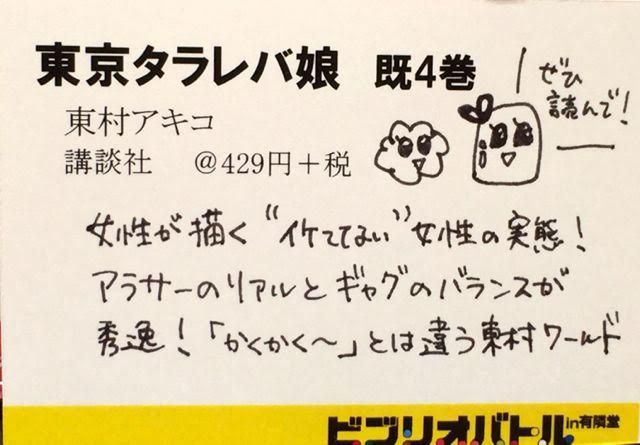 東京タラレバ娘 既4巻
東村アキコ
講談社 @429円+税
ぜひ
読んで!
女性が描く“イケてない”女性の実態!
アラサーのリアルとギャグのバランスが
秀逸!「かくかく~」とは違う東村ワールド
ビブリオバトルin有隣堂